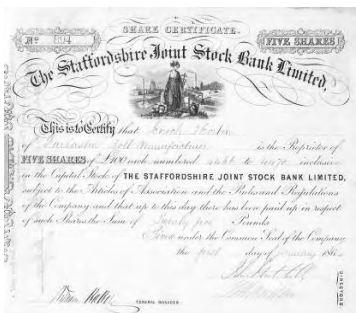 SHARE CERTIFICATE.
No 894 FIVE SHARES
The Staffordshire Joint Stock Bank Limited,
This is to Certify that Enoch
of Bolt Manufacturer is the Proprietor of
FIVE SHARES of £100 each numbered 4466 to 4470 inclusive
in the Capital Stock of THE STAFFORDSHIRE JOINT STOCK BANK LIMITED,
subject to the Articles of Association and the Rules and Regulations
of the Company and that up to this day there has been paid up in respect
of such Shares the Sum of Twenty five Pounds
Given under the Common Seal of the Company
the first day of January 186
GENERAL MANAGER.
DIRECTORS.